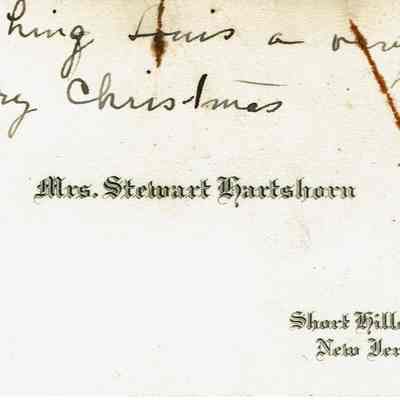 hing Louis a very
ry Christmas
Mrs. Stewart Hartshorn
Short Hills
New Jer